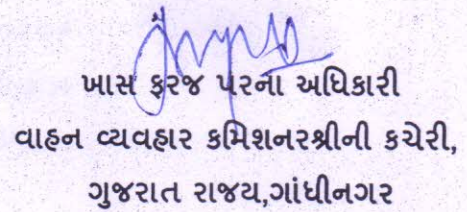 ખાસ ફરજ પરના અધિકારી
વાહન વ્યવહાર કમિશનરશ્રીની કચેરી,
ગુજરાત રાજય,ગાંધીનગર